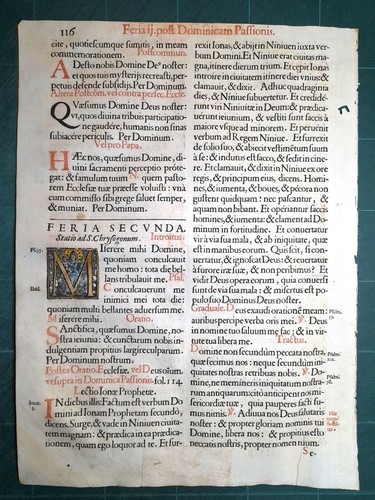 116
Feria ij. post Dominicam Passionis.
cite, quotiescumque sumitis, in meam
commemorationem. Postcommun.
ADesto nobis Domine Deus noster:
et quos tuis mysterijs recreasti, perpetuis defende subsidijs. Per Dominum.
Altera Postcom. vel contra persec. Eccles.
QVæsumus Domine Deus noster:
vt, quos diuina tribuis participatione gaudere, humanis non sinas
subiacere periculis. Per Dominum.
Vel pro Papa.
HÆc nos, quæsumus Domine, diuini sacramenti perceptio protegat: & famulum tuum N. quem pastorem Ecclesiæ tuæ præesse voluisti: vnà
cum commisso sibi grege saluet semper,
& muniat. Per Dominum.
FERIA SECVNDA.
Statio ad S. Chrysogonum. Introitus.
Psal. 55.
MIserere mihi Domine,
quoniam conculcauit
me homo: tota die bellans tribulauit me. Psal.
Ibid.
Conculcauerunt me
inimici mei tota die:
quoniam multi bellantes aduersum me.
Miserere mihi. Oratio.
SAnctifica, quæsumus Domine, nostra ieiunia: & cunctarum nobis indulgentiam propitius largire culparum.
Per Dominum nostrum.
Postea Oratio. Ecclesiæ. vel Deus oĩum.
vt supra in Dominica Passionis. fol. 114.
Lectio Ionæ Prophetæ.
Ionæ. 3.
IN diebus illis: Factum est verbum Domini ad Ionam Prophetam secundò,
dicens. Surge, & vade in Niniuen ciuitatem magnam: & prædica in ea prædicationem, quam ego loquor ad te. Et surrexit Ionas, & abijt in Niniuen iuxta verbum Domini. Et Niniue erat ciuitas magna, itinere dierum trium. Et cœpit Ionas
introire in ciuitatem itinere diei vnius: &
clamauit, & dixit. Adhuc quadraginta
dies, & Niniue subuertetur. Et crediderunt viri Niniuitæ in Deum: & prædicauerunt ieiunium, & vestiti sunt saccis à
maiore vsque ad minorem. Et peruenit
verbum ad Regem Niniue. Et surrexit
de solio suo, & abiecit vestimẽtum suum
à se: & indutus est sacco, & sedit in cinere. Et clamauit, & dixit in Niniue ex ore
regis, & principum eius, dicens. Homines, & iumenta, & boues, & pecora non
gustent quidquam: nec pascantur, &
aquam non bibant. Et operiantur saccis
homines, & iumenta: & clament ad Dominum in fortitudine. Et conuertatur
vir à via sua mala, & ab iniquitate, quæ
est in manibus eorum. Quis scit, si conuertatur, & ignoscat Deus: & reuertatur
à furore iræ suæ, & non peribimus? Et
vidit Deus opera eorum, quia conuersi
sunt de via sua mala: & misertus est populo suo Dominus Deus noster.
Graduale. Deus exaudi orationẽ meam:
auribus percipe verba oris mei. ℣. Deus
in nomine tuo saluum me fac: & in virtute tua libera me. Tractus.
Domine non secundum peccata nostra,
quæ fecimus nos: neque secundum iniquitates nostras retribuas nobis. ℣. Domine, ne memineris iniquitatum nostrarum antiquarum: citò anticipent nos misericordiæ tuæ, quia pauperes facti sumus nimis. ℣. Adiuua nos Deus salutaris
noster: & propter gloriam nominis tui
Domine, libera nos: & propitius esto
peccatis nostris, propter nomen tuum.
Se-